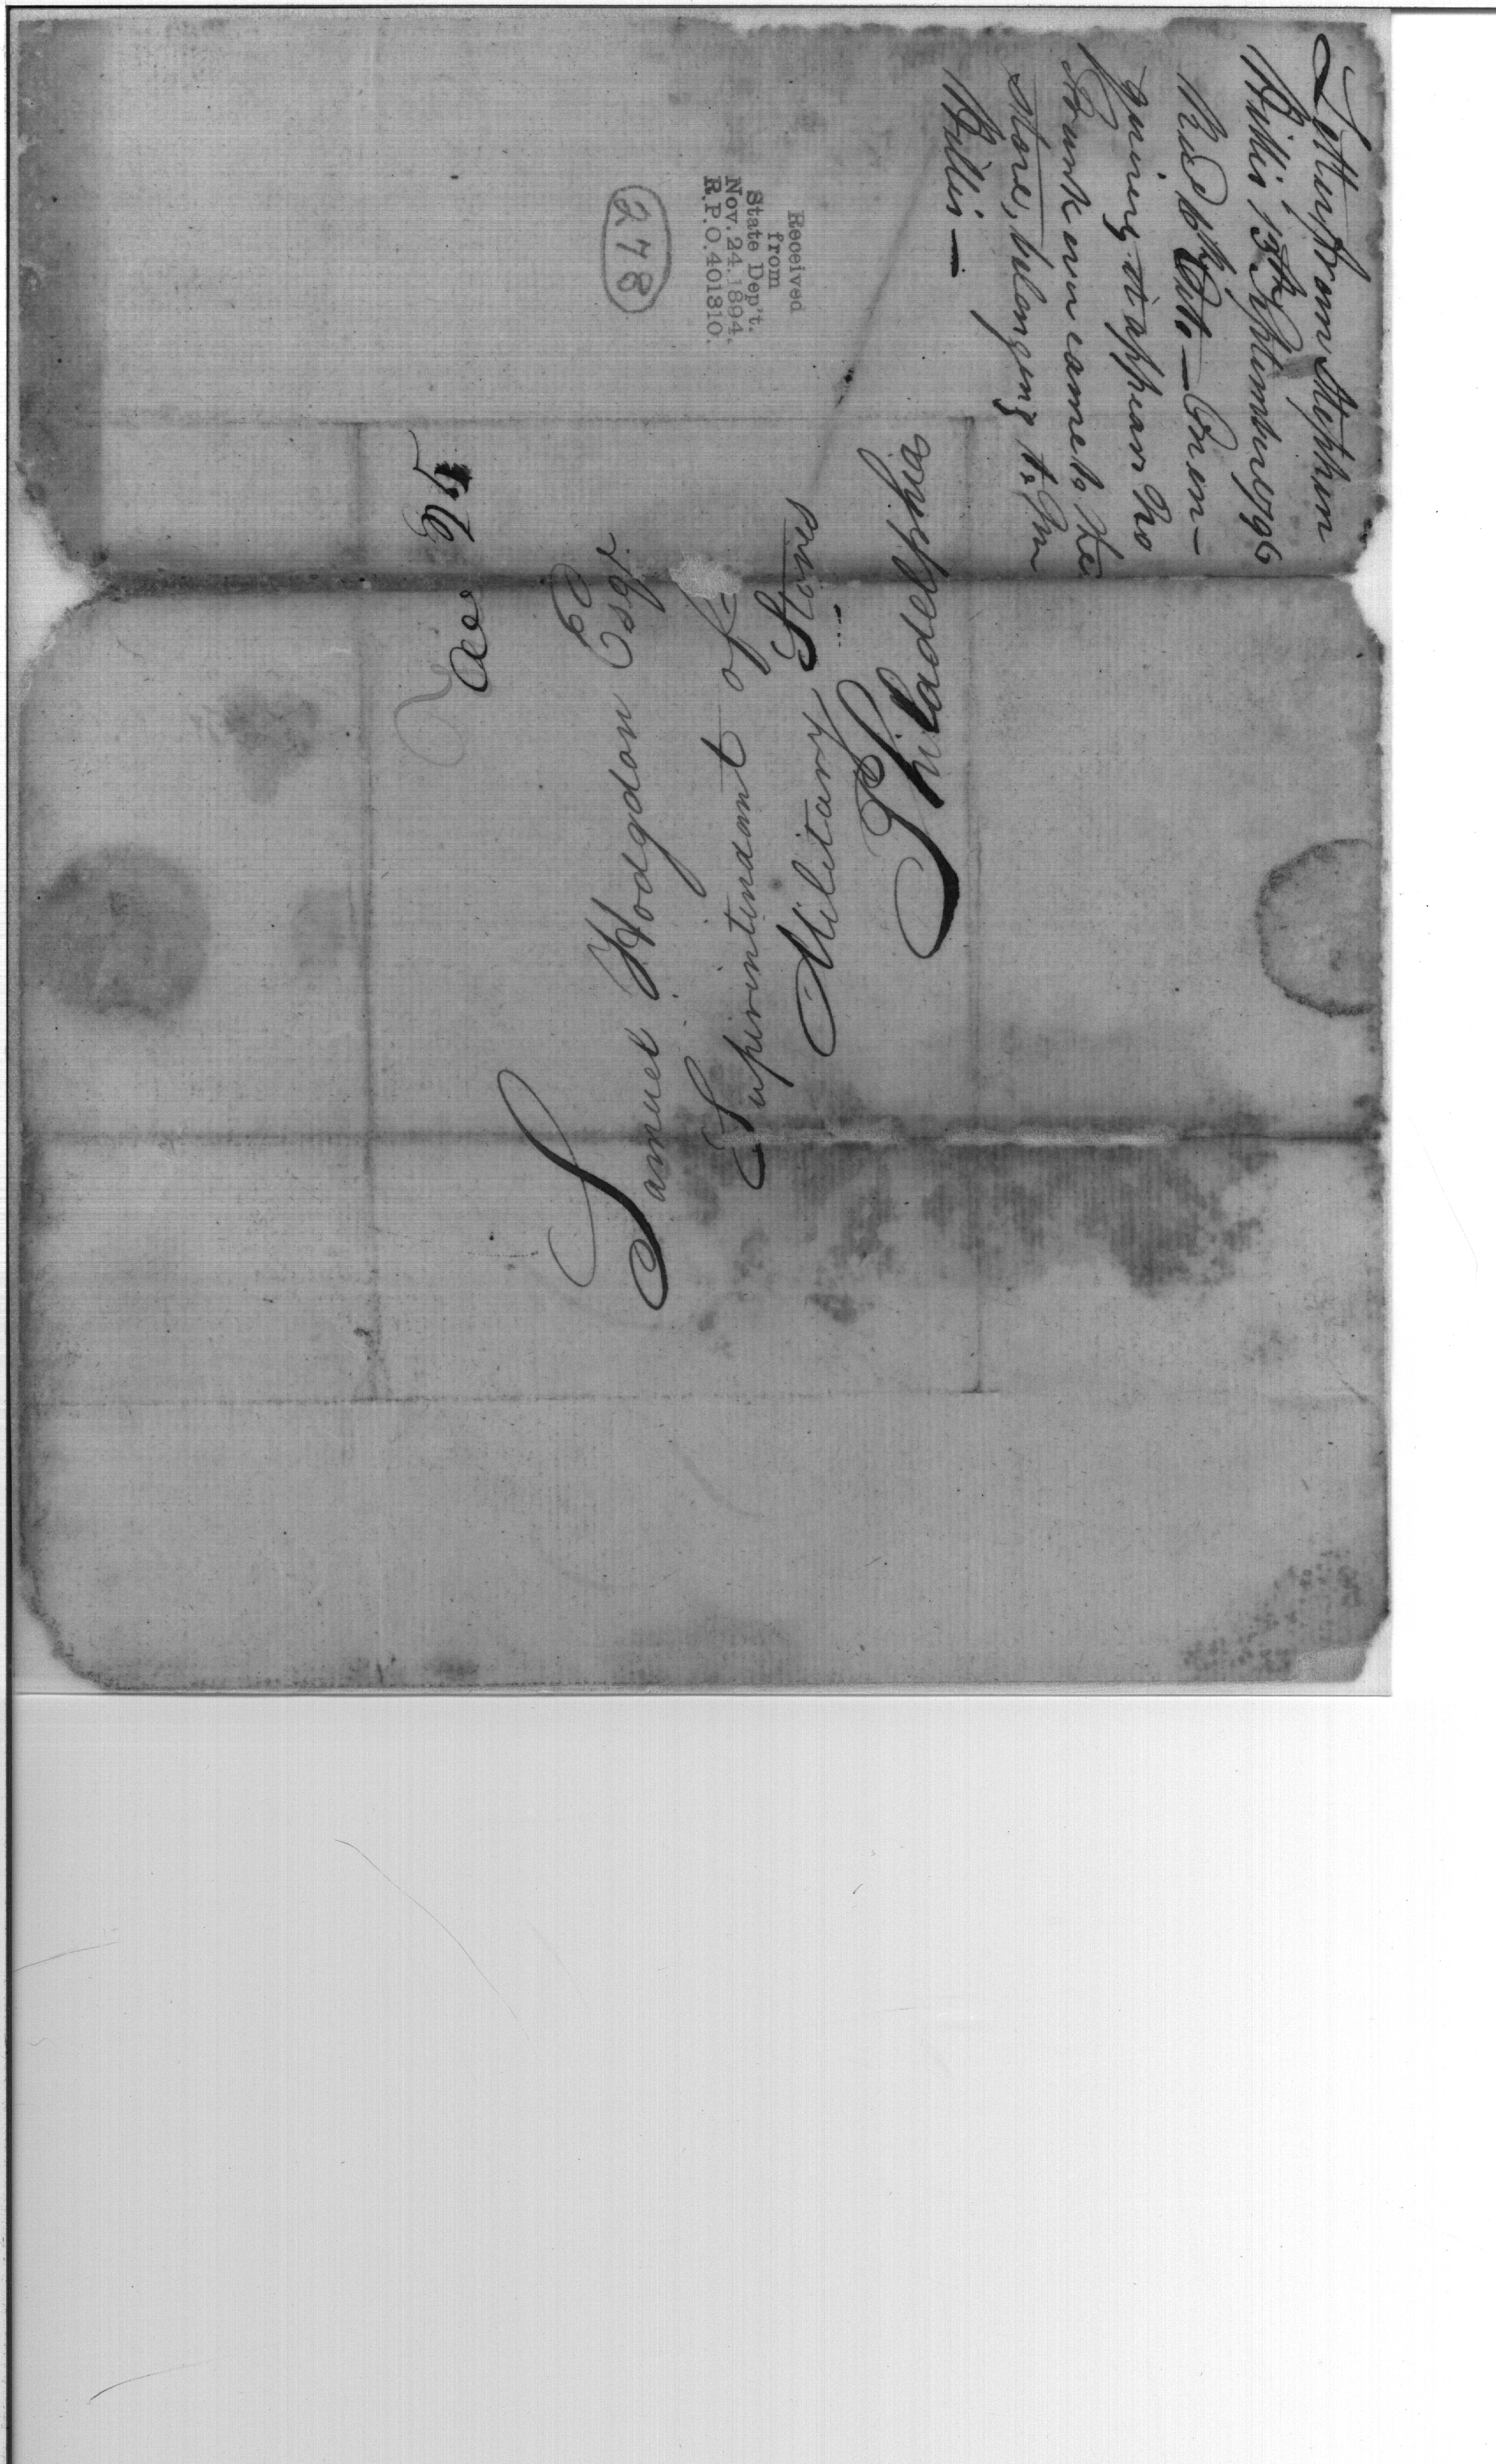 Letter from Stephen
Hillis 13th September 1796
Recd 6th Octo — On en-
quiring it appears No
Trunk ever came to the
store, belonging to Mr
Hillis —
Received
from
State Dep't.
Nov. 24. 1894.
R.P.O. 401310.
278
Samuel Hodgdon Esqr
Superintendant of
Military Stores
Philadelphia